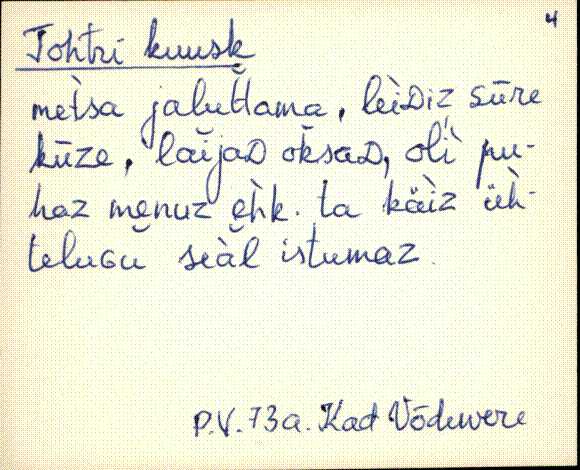 4
Tohtri kuusk
mètsa jalŭttama, lèiDiz sūre
kūze, lăijaD ŏksaD, olì pu-
haz menuz èhk. ta käìz üh̀-
teluGŭ seàl istumaz.
P.V. 73a. Kad Võduvere